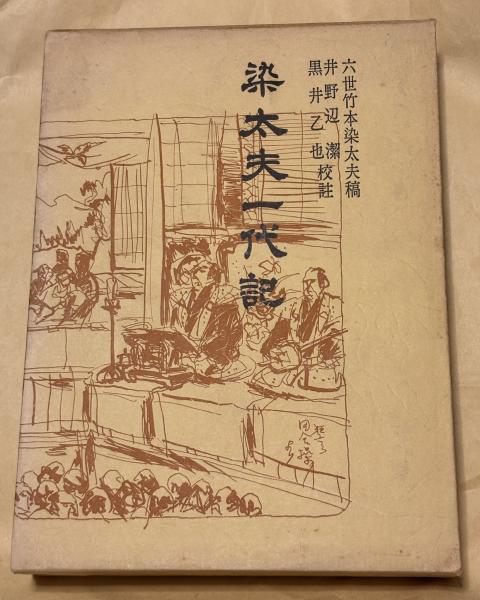 六世竹本染太夫稿
井野辺潔
黒井乙也校註
染太夫一代記